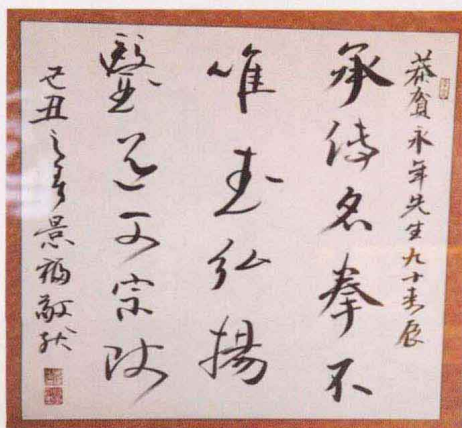 恭賀永年先生九十寿辰
承傳名拳不
唯武弘揚
毉道可宗师
己丑之春景福敬献